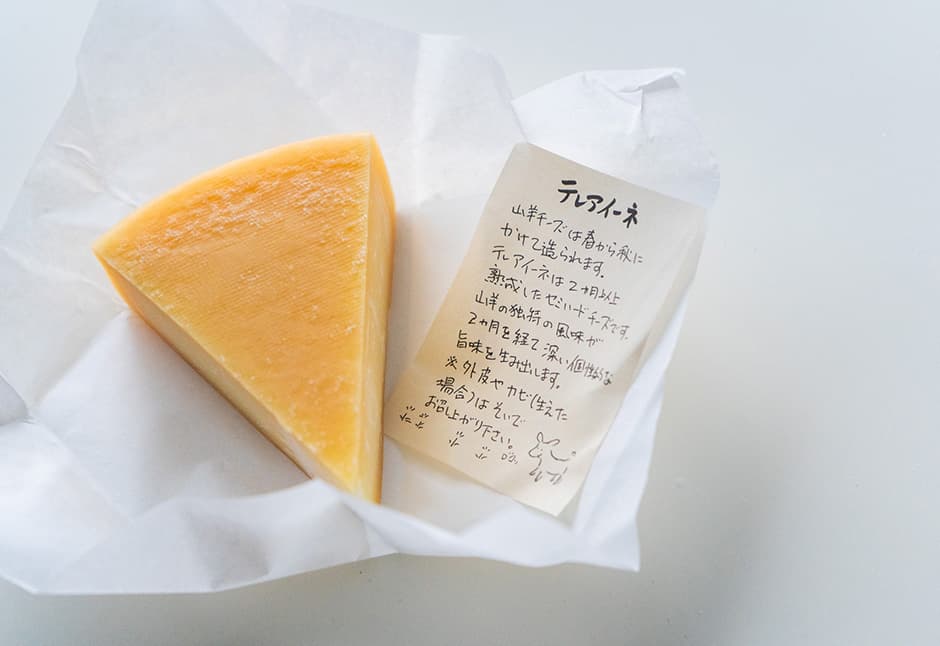 テレアイーネ
山羊チーズは春から秋に
かけて造られます。
テレアイーネは2ヶ月以上
熟成したセミハードチーズです。
山羊の独特の風味が
2ヶ月を経て深い個性的な
旨味を生み出します。
※外皮やカビ(生えた
場合)はそいで
お召し上がり下さい。